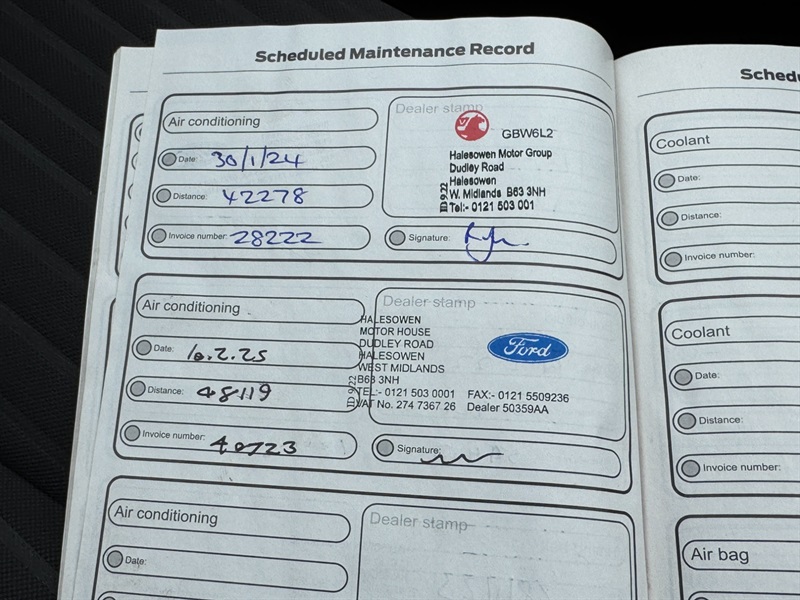 Scheduled Maintenance Record
Air conditioning
Date: 30/1/24
Distance: 42278
Invoice number: 28222
Dealer stamp
GBW6L2
Halesowen Motor Group
Dudley Road
Halesowen
W. Midlands B63 3NH
Tel:- 0121 503 001
ID 9.22
Signature:
Air conditioning
Date: 10.2.25
Distance: 48119
Invoice number: 40723
Dealer stamp
HALESOWEN
MOTOR HOUSE
DUDLEY ROAD
HALESOWEN
WEST MIDLANDS
B63 3NH
TEL:- 0121 503 0001 FAX:- 0121 5509236
VAT No. 274 7367 26 Dealer 50359AA
ID 9/22
Ford
Signature:
Air conditioning
Date:
Dealer stamp
Schedu
Coolant
Date:
Distance:
Invoice number:
Coolant
Date:
Distance:
Invoice number:
Air bag